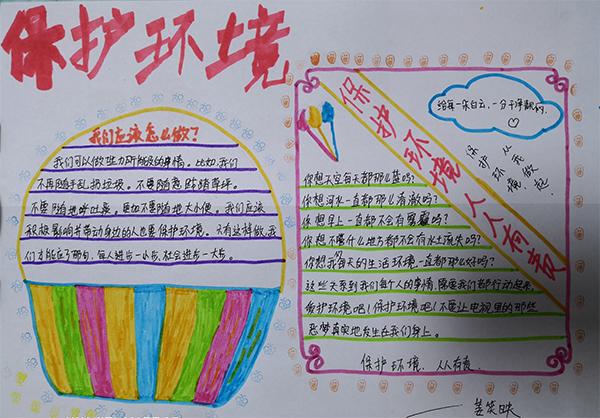 保护环境
我们应该怎么做?
我们可以做些力所能及的事情。比如,我们
不再随手乱扔垃圾。不要随意踩踏草坪。
不要随地吐痰。更加不要随地大小便。我们应该
积极影响并带动身边的人也要保护环境。只有这样做,我
们才能应了那句,每人进步一小步,社会进步一大步。
保护环境人人有责
给每一朵白云,一分干净
保护从我
环境做起
你想不空每天都那么蓝吗?
你想河水一直都那么清澈吗?
你想早上一直都不会有雾霾吗?
你想不管什么地方都不会有水土流失吗?
你想我每天的生活环境一直都那么好吗?
这些关系到我们每个人的事情,需要我们都行动起来,
爱护环境吧!保护环境吧!不要让电视里的那些
恶梦真实地发生在我们身上。
保护环境,人人有责